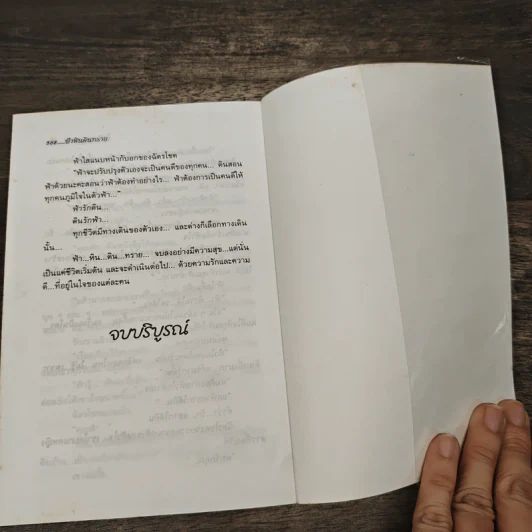 ๖๑๑....ฟ้าหินดินทราย
ฟ้าใสแนบหน้ากับอกของฉัตรโชค
"ฟ้าจะปรับปรุงตัวเองจะเป็นคนดีของทุกคน... ดินสอน
ฟ้าด้วยนะคะสอนว่าฟ้าต้องทำอย่างไร... ฟ้าต้องการเป็นคนดีให้
ทุกคนภูมิใจในตัวฟ้า..."
ฟ้ารักดิน...
ดินรักฟ้า...
ทุกชีวิตมีทางเดินของตัวเอง... และต่างก็เลือกทางเดิน
นั้น...
ฟ้า...หิน...ดิน...ทราย... จบลงอย่างมีความสุข...แต่นั่น
เป็นแค่ชีวิตเริ่มต้น และจะดำเนินต่อไป... ด้วยความรักและความ
ดี...ที่อยู่ในใจของแต่ละคน
จบบริบูรณ์